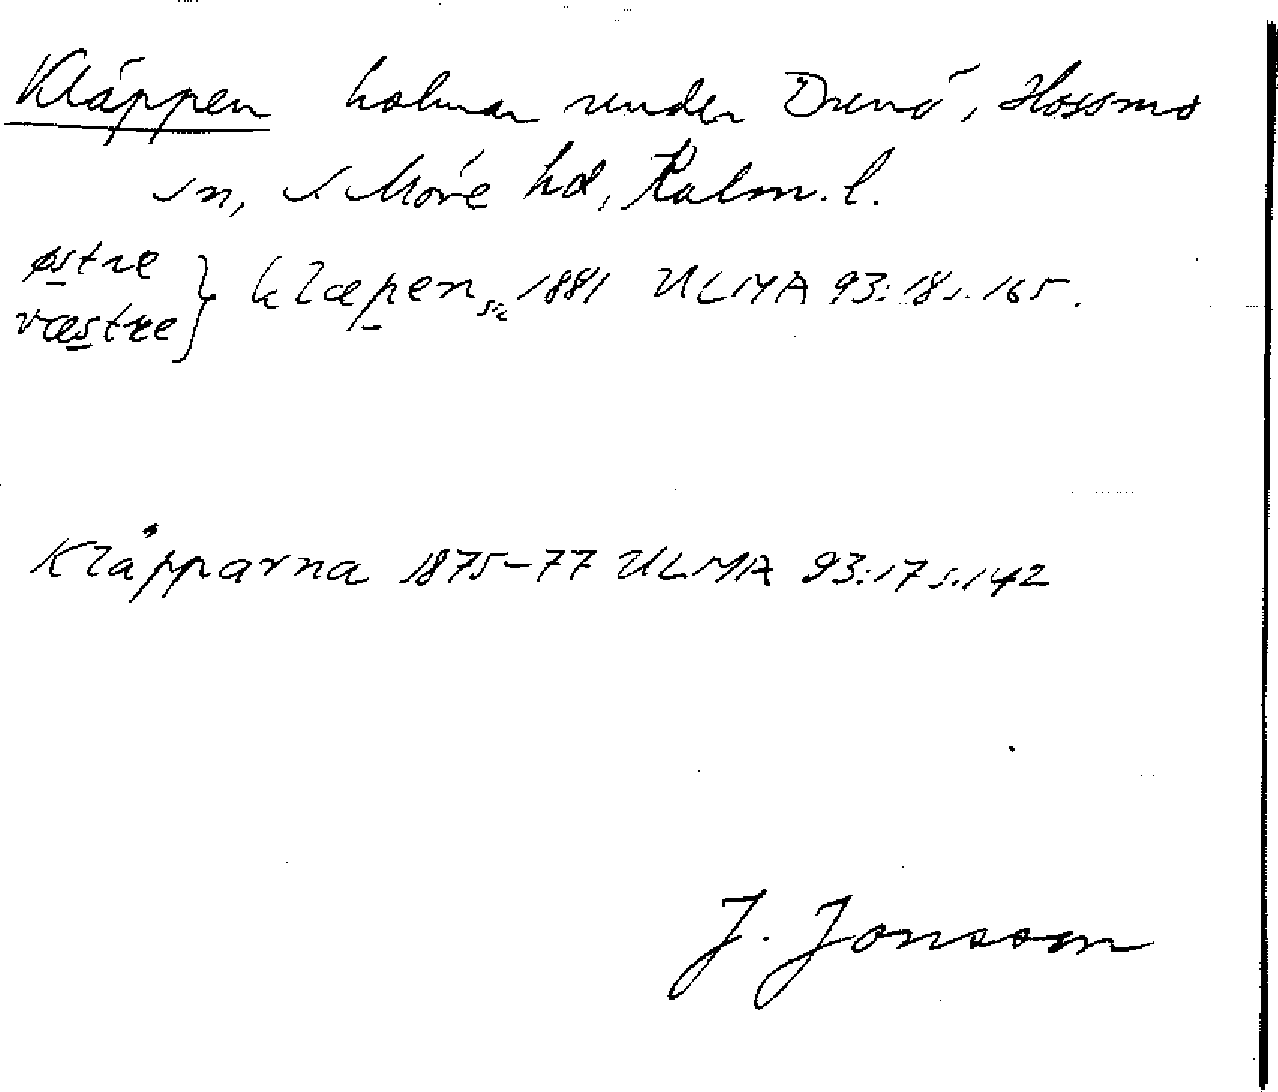 Kläppen holmar under Drenö, Hossmo
sn, s. Möre hd, Kalm. l.
østre
væstre } klæpen sic 1881 ULMA 93:18 s. 165.
Kläpparna 1875-77 ULMA 93:17 s. 142
J. Jonsson